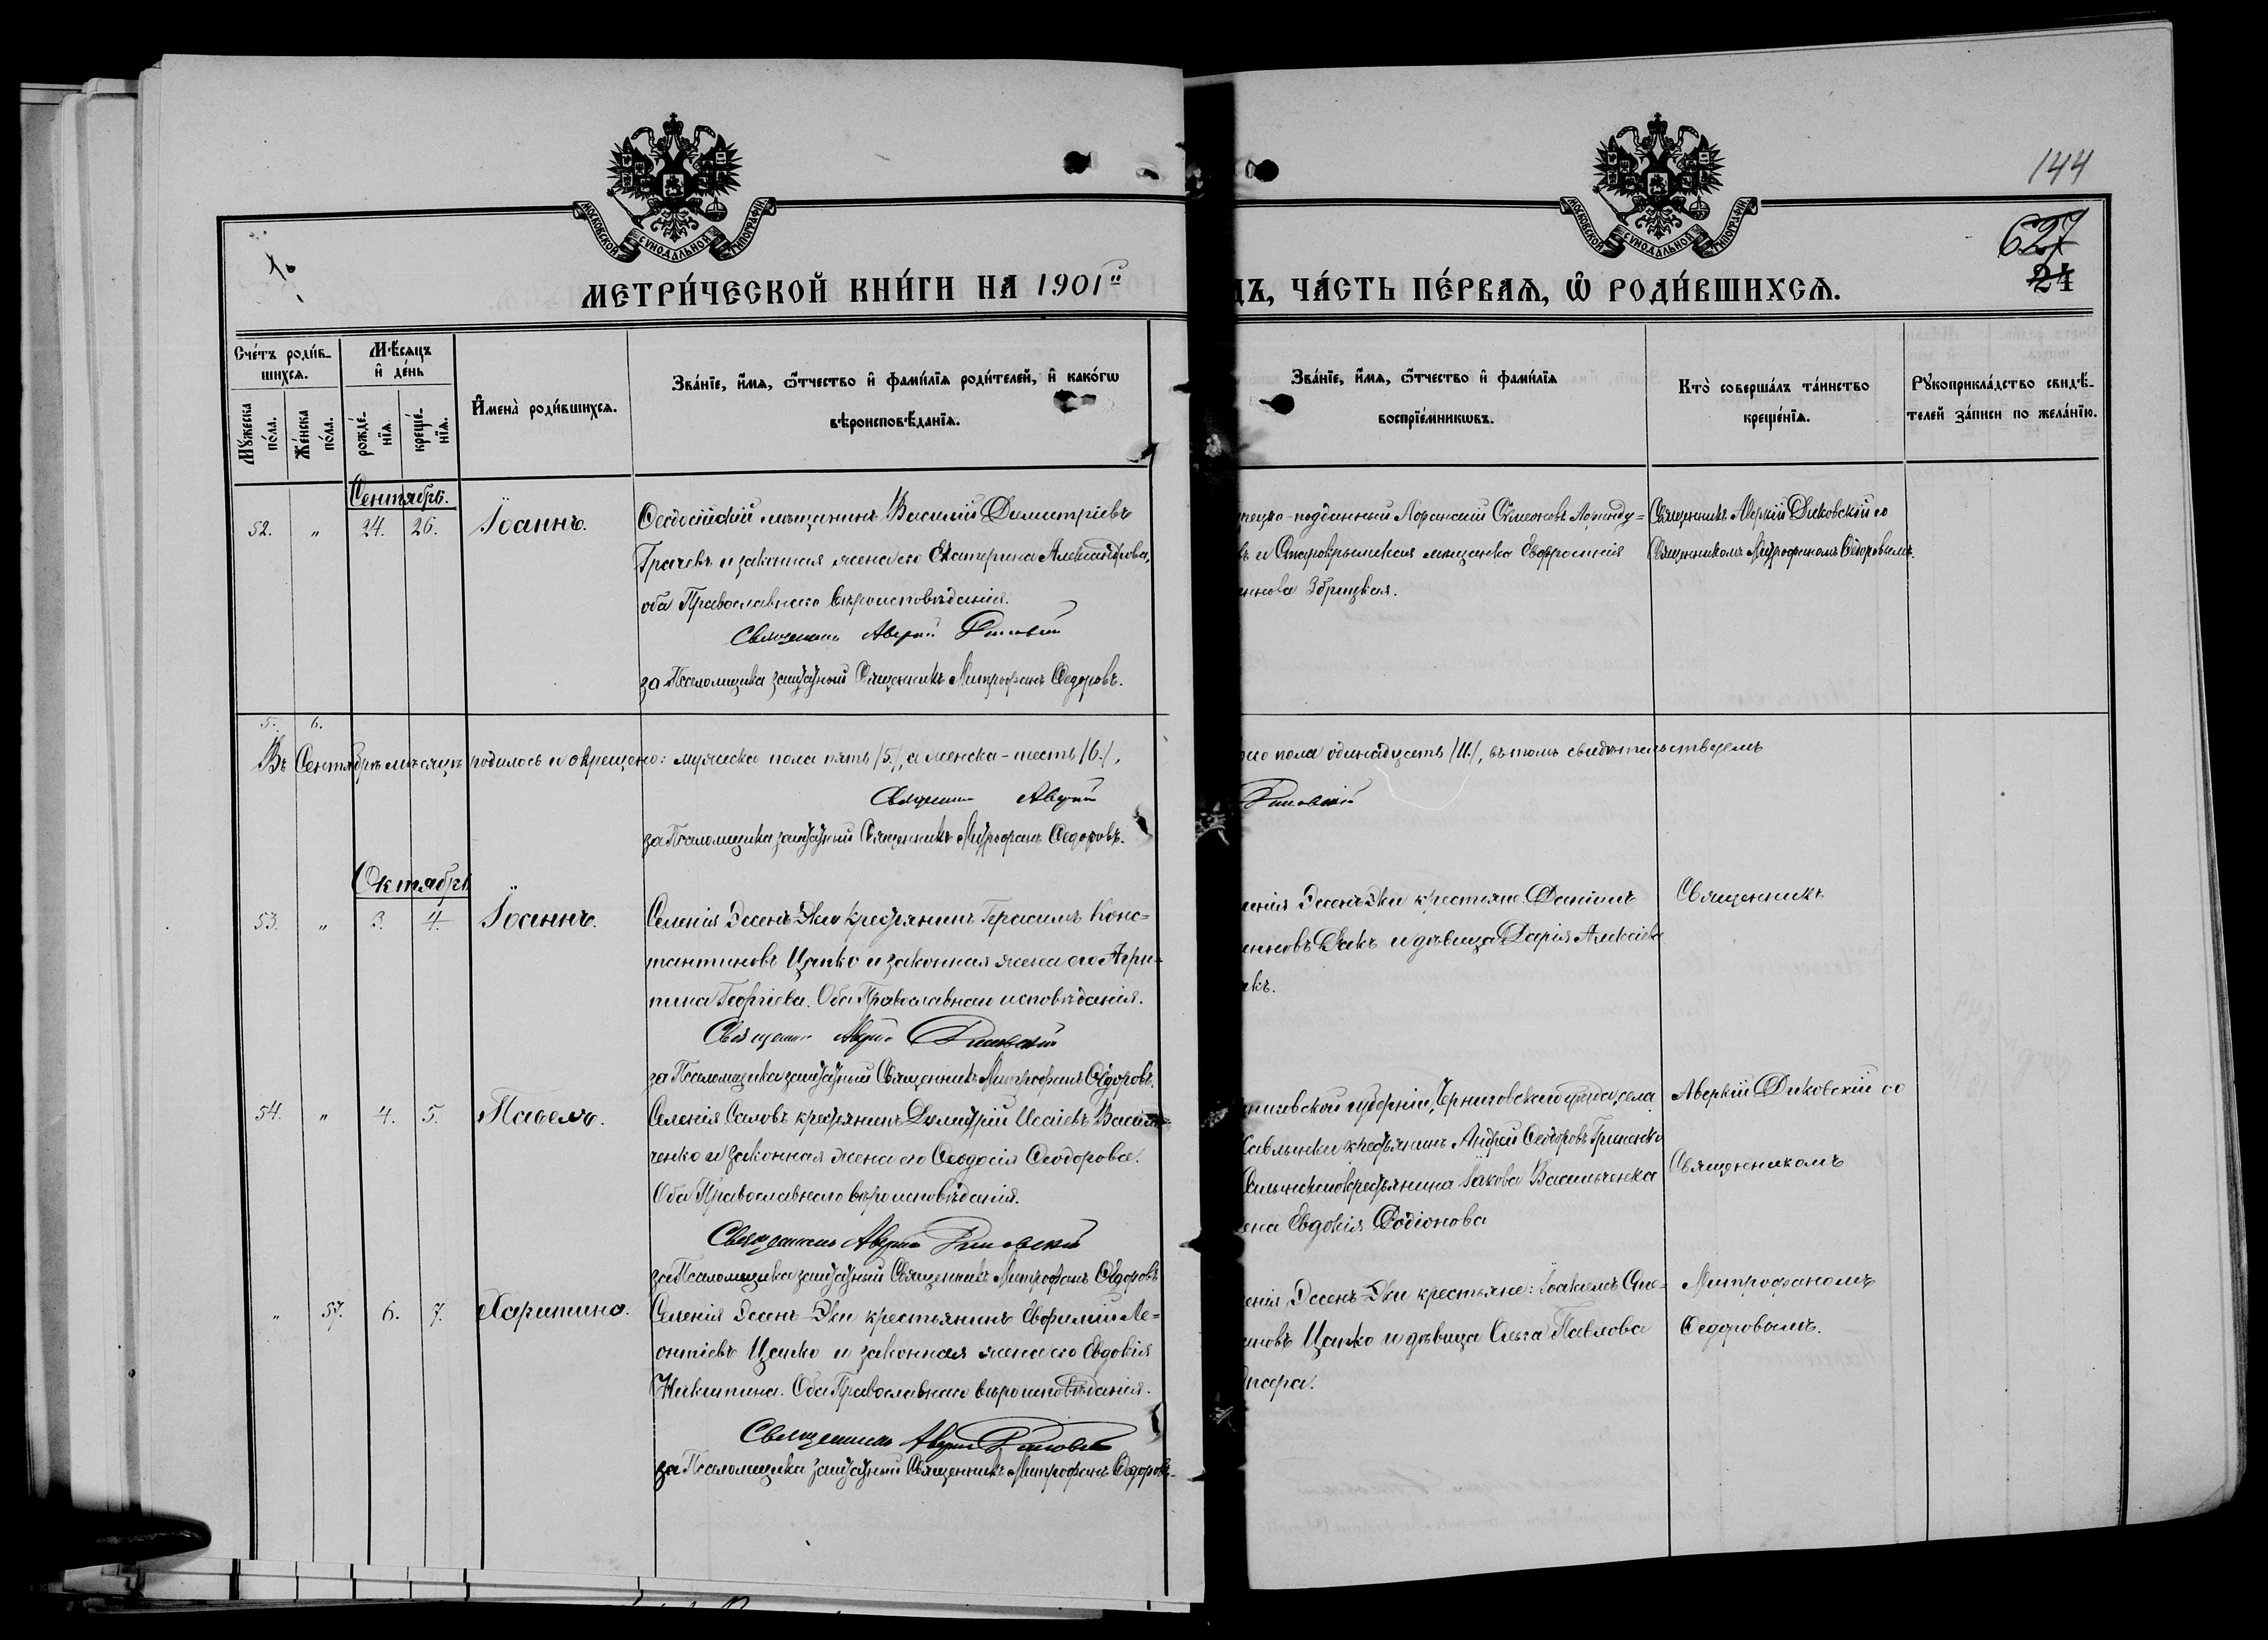 144
627
24
МОСКОВСКОЙ СѴНОДАЛЬНОЙ ТИПОГРАФІИ
МОСКОВСКОЙ СѴНОДАЛЬНОЙ ТИПОГРАФІИ
МЕТРИ́ЧЕСКОЙ КНИ́ГИ НА 1901й
ДЪ, ЧА́СТЬ ПЕ́РВАѦ, Ѡ҆ РОДИ́ВШИХСѦ.
Сче́тъ роди́в-
шихсѧ.
Мꙋ́жеска
по́ла.
Же́нска
по́ла.
Мѣ́сѧцъ
и҆ де́нь
рожде́-
нїѧ.
креще́-
нїѧ.
И҆мена̀ роди́вшихсѧ.
Зва́нїе, и҆́мѧ, ѻ҆́тчество и҆ фами́лїѧ роди́телей, и҆ како́гѡ
вѣроисповѣ́данїѧ.
Зва́нїе, и҆́мѧ, ѻ҆́тчество и҆ фами́лїѧ
воспрїе́мникѡвъ.
Кто̀ соверша́лъ та́инство
креще́нїѧ.
Рꙋкоприкла́дство свидѣ́-
телей за́писи по жела́нїю.
Сентябрь.
52. " 24. 26. Іоаннъ.
Ѳеодосійскій мѣщанинъ Василій Димитріевъ
Грачевъ и законная жена его Екатерина Александрова,
оба Православнаго вѣроисповѣданія.
Священникъ Аверкій Диковскій
за Псаломщика заштатный Священникъ Митрофанъ Ѳедоровъ.
-подданный Симеоновъ
и Старокрымская мѣщанка Евфросинія
ннова Збрицкая.
Священникъ Аверкій Диковскій со
Священникомъ Митрофаномъ Ѳедоровымъ.
5. 6.
Въ Сентябрѣ мѣсяцѣ родилось и окрещено: мужеска пола пять /5/, а женска - шесть /6./,
его пола одинадцать /11./, въ томъ свидѣтельствуемъ
Священникъ Аверкій
Диковскій
за Псаломщика заштатный Священникъ Митрофанъ Ѳедоровъ.
Октябрь
53. " 3. 4. Іоаннъ.
Селенія Эсенъ-Эки крестьянинъ Герасимъ Конс-
тантиновъ Цапко и законная жена его Агри-
пина Георгіева. Оба Православнаго исповѣданія.
Священникъ Аверкій Диковскій
за Псаломщика заштатный Священникъ Митрофанъ Ѳедоровъ.
ленія Эсенъ-Эки крестьяне: Даніилъ
и дѣвица Дарія Алексѣева
акъ.
Священникъ
54. " 4. 5. Павелъ.
Селенія Саловъ крестьянинъ Димитрій Исаіевъ Василь-
ченко и законная жена его Ѳеодосія Ѳеодорова.
Оба Православнаго вѣроисповѣданія.
Священникъ Аверкій Диковскій
за Псаломщика заштатный Священникъ Митрофанъ Ѳедоровъ
ниговской губерніи, Черниговскаго уѣзда, села
крестьянинъ Андрей Ѳеодоровъ Гриценко
крестьянина Іакова Васильченка
ена Евдокія Родіонова
Аверкій Диковскій со
Священникомъ
" 57. 6. 7. Харитина.
Селенія Эсенъ-Эки крестьянинъ Евфимій Ле-
онтіевъ Цапко и законная жена его Евдокія
Никитина. Оба Православнаго вѣроисповѣданія.
Священникъ Аверкій Диковскій
за Псаломщика заштатный Священникъ Митрофанъ Ѳедоровъ.
енія Эсенъ-Эки крестьяне: Іоакимъ Сте-
ановъ Цапко и дѣвица Ольга Павлова
Митрофаномъ
Ѳедоровымъ.